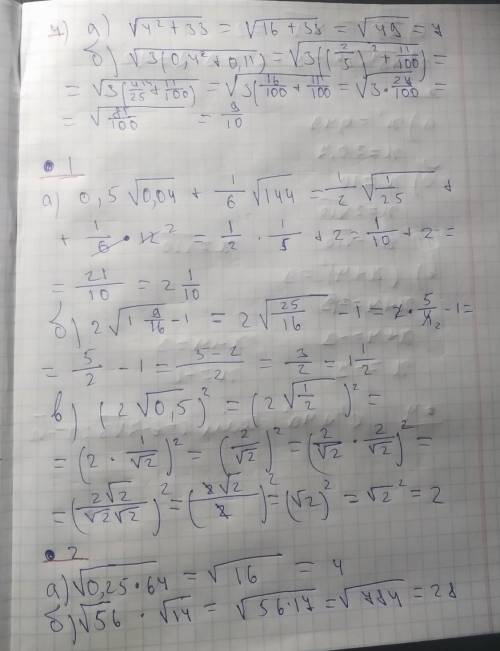 7) а) √4² + 33 = √16 + 33 = √49 = 7
б) √3(0,4² + 0,11) = √3((2/5)² + 11/100) =
= √3(4/25 + 11/100) = √3(16/100 + 11/100 = √3 · 27/100 =
= √81/100 = 9/10
• 1
а) 0,5 √0,04 + 1/6 √144 = 1/2 √1/25 +
+ 1/6 · 12 ² = 1/2 · 1/5 + 2 = 1/10 + 2 =
= 21/10 = 2 1/10
б) 2 √1 9/16 - 1 = 2 √25/16 - 1 = 2 · 5/4 2 - 1 =
= 5/2 - 1 = 5-2/2 = 3/2 = 1 1/2
в) (2 √0,5)² = (2 √1/2)² =
= (2 · 1/√2)² = (2/√2)² = (2/√2 · 2/√2)² =
= (2√2/√2√2)² = (2√2/2)² = (√2)² = √2² = 2
• 2
а) √0,25 · 64 = √16 = 4
б) √56 · √14 = √56·14 = √784 = 28